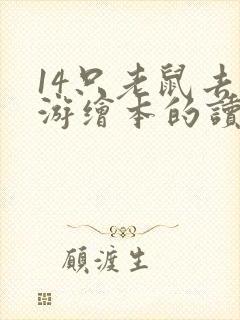 14只老鼠去
游繪本的讀
顧渡生